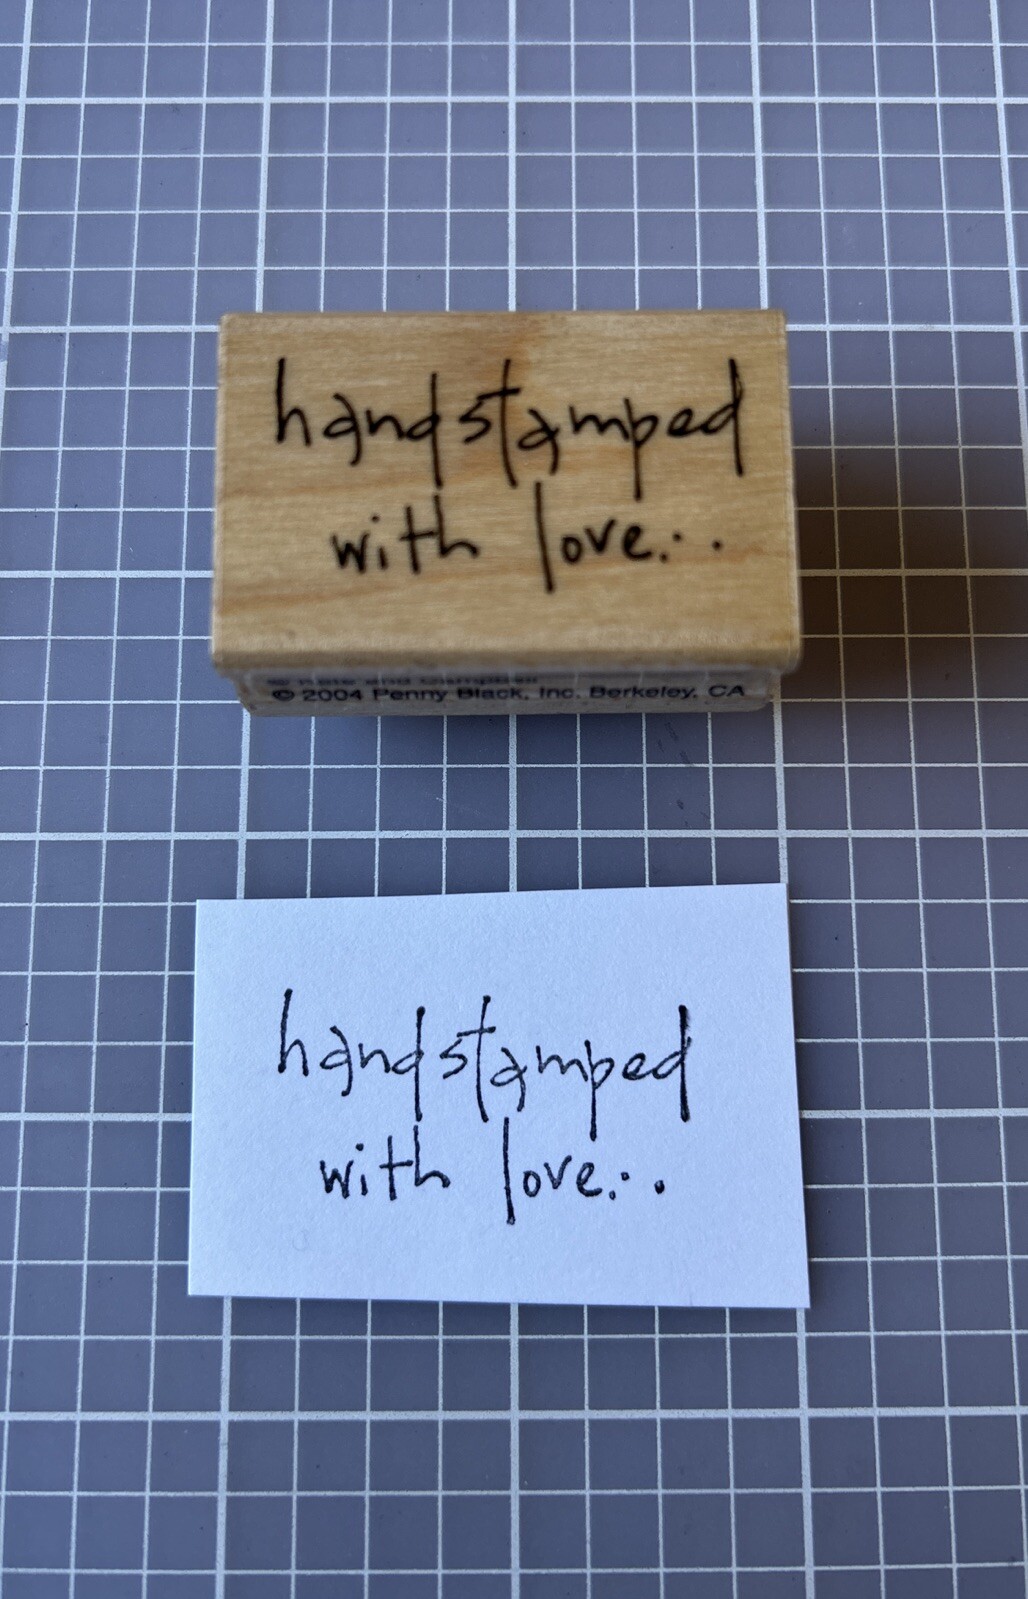 handstamped
with love...
© 2004 Penny Black, Inc. Berkeley, CA
handstamped
with love...